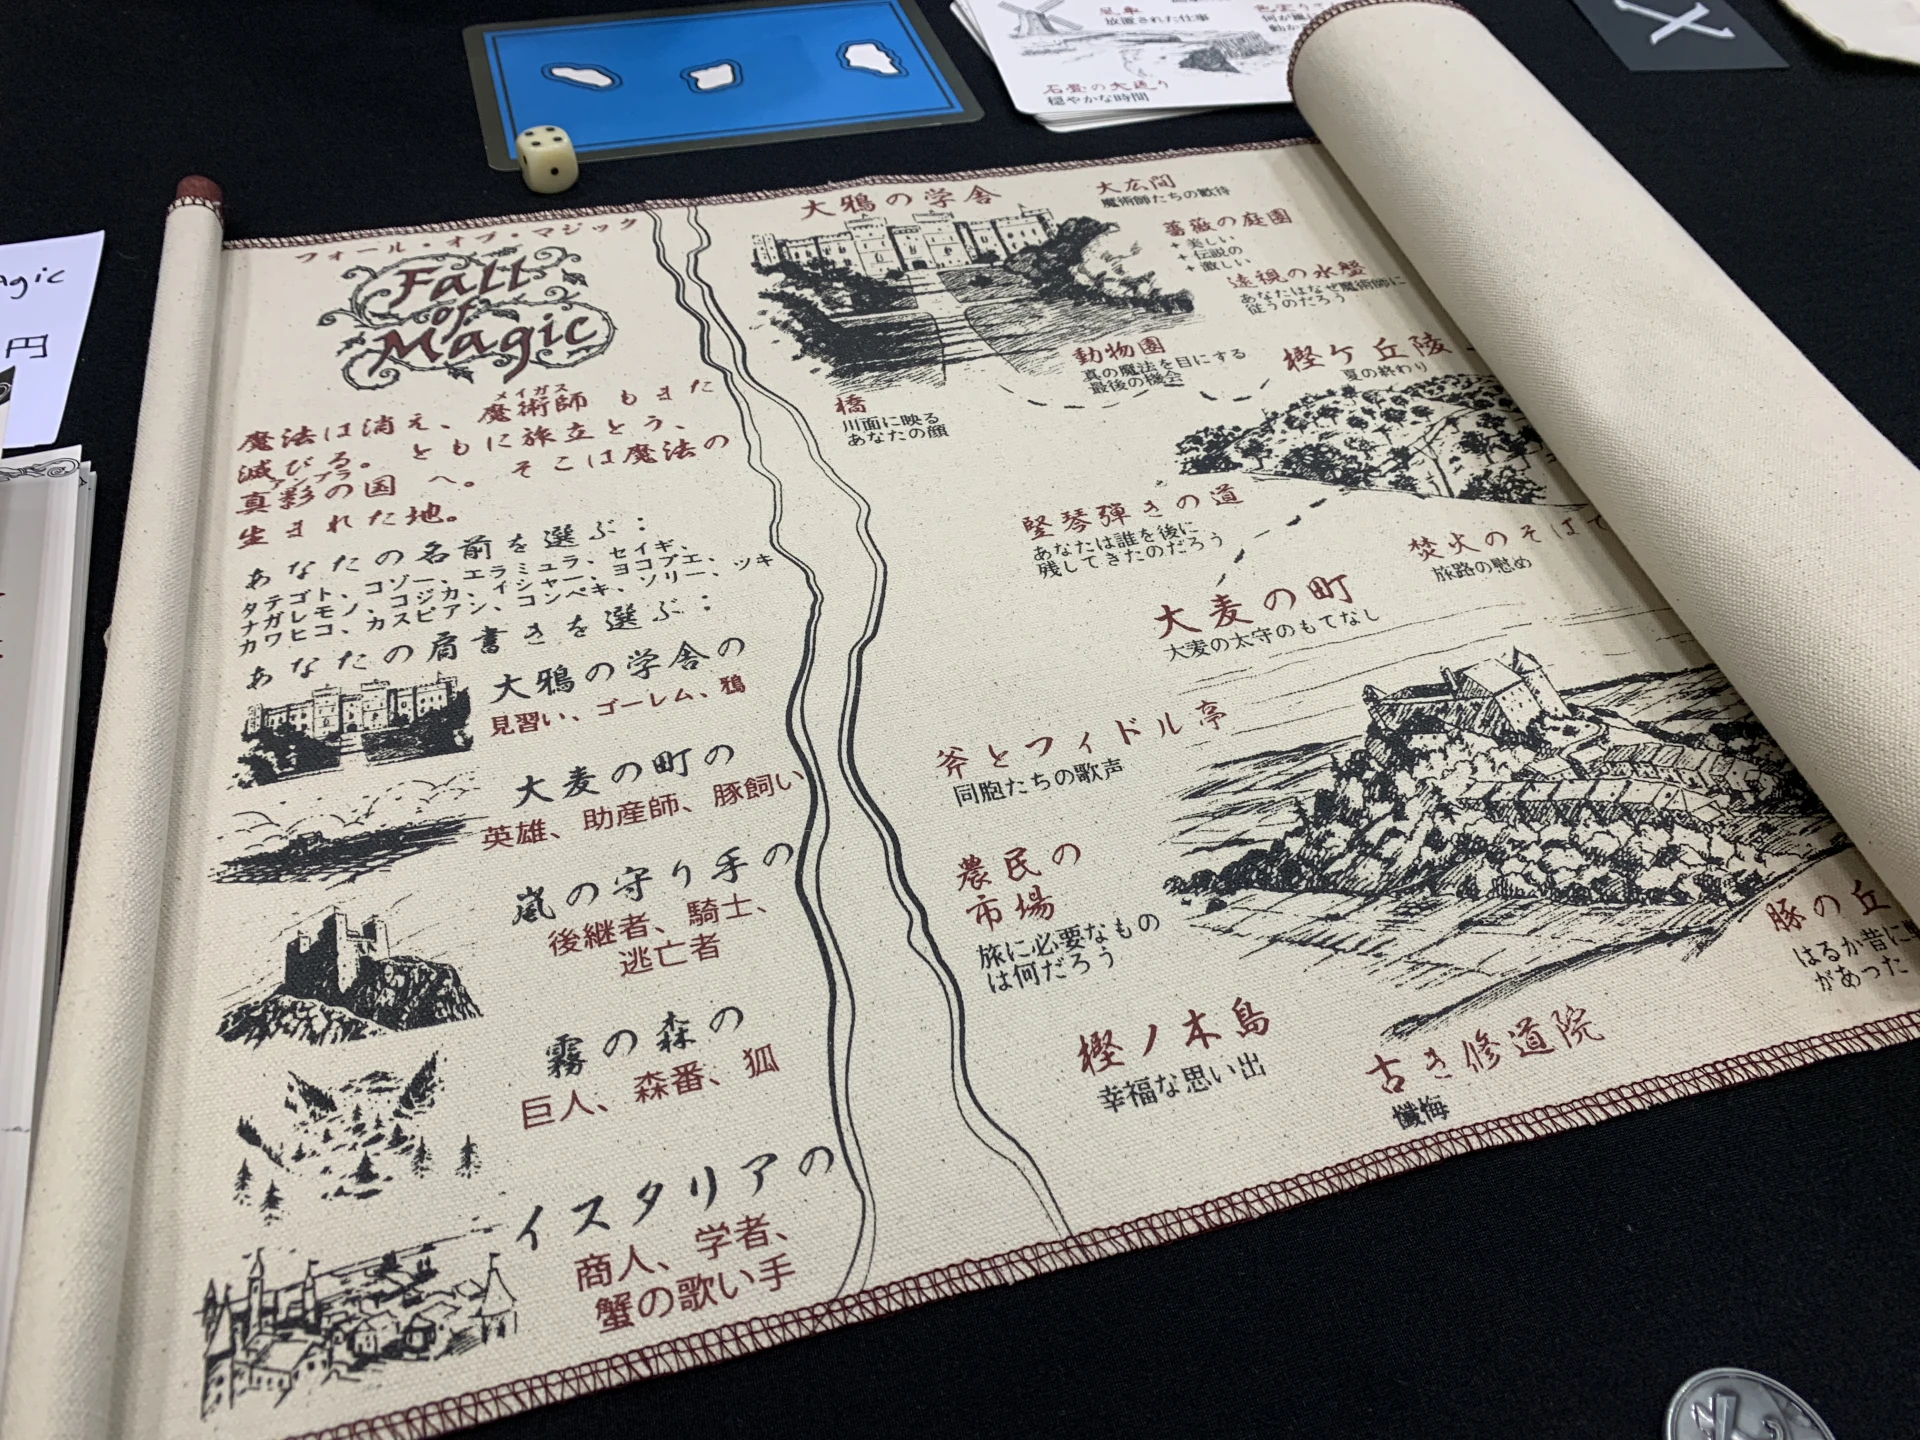 フォール・オブ・マジック
Fall
of
Magic
メイガス
魔法は消え、魔術師もまた
滅びる。ともに旅立とう、
アンブラ
真影の国へ。そこは魔法の
生まれた地。
あなたの名前を選ぶ：
タテゴト、コゾー、エラミュラ、セイギ、
ナガレモノ、コジカ、イシャー、ヨコブエ、
カワヒコ、カスピアン、コンペキ、ソリー、ツキ
あなたの肩書きを選ぶ：
大鴉の学舎の
見習い、ゴーレム、鴉
大麦の町の
英雄、助産師、豚飼い
嵐の守り手の
後継者、騎士、
逃亡者
霧の森の
巨人、森番、狐
イスタリアの
商人、学者、
蟹の歌い手
大鴉の学舎
大広間
魔術師たちの歓待
薔薇の庭園
+ 美しい
+ 伝説の
+ 激しい
遠視の水盤
あなたはなぜ魔術師に
従うのだろう
動物園
真の魔法を目にする
最後の機会
橋
川面に映る
あなたの顔
樫ケ丘陵
夏の終わり
竪琴弾きの道
あなたは誰を後に
残してきたのだろう
焚火のそばで
旅路の慰め
大麦の町
大麦の太守のもてなし
斧とフィドル亭
同胞たちの歌声
農民の
市場
旅に必要なもの
は何だろう
豚の丘
はるか昔に
があった
樫ノ木島
幸福な思い出
古き修道院
懺悔
放置された仕事
石畳の大通り
穏やかな時間
agic
円
X